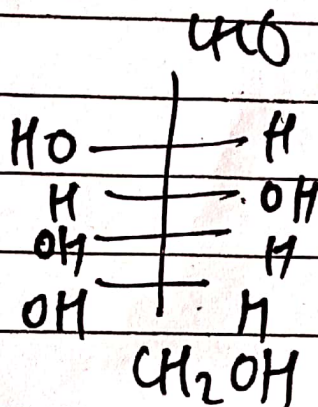 CHO
HO H
H OH
OH H
OH H
CH2OH